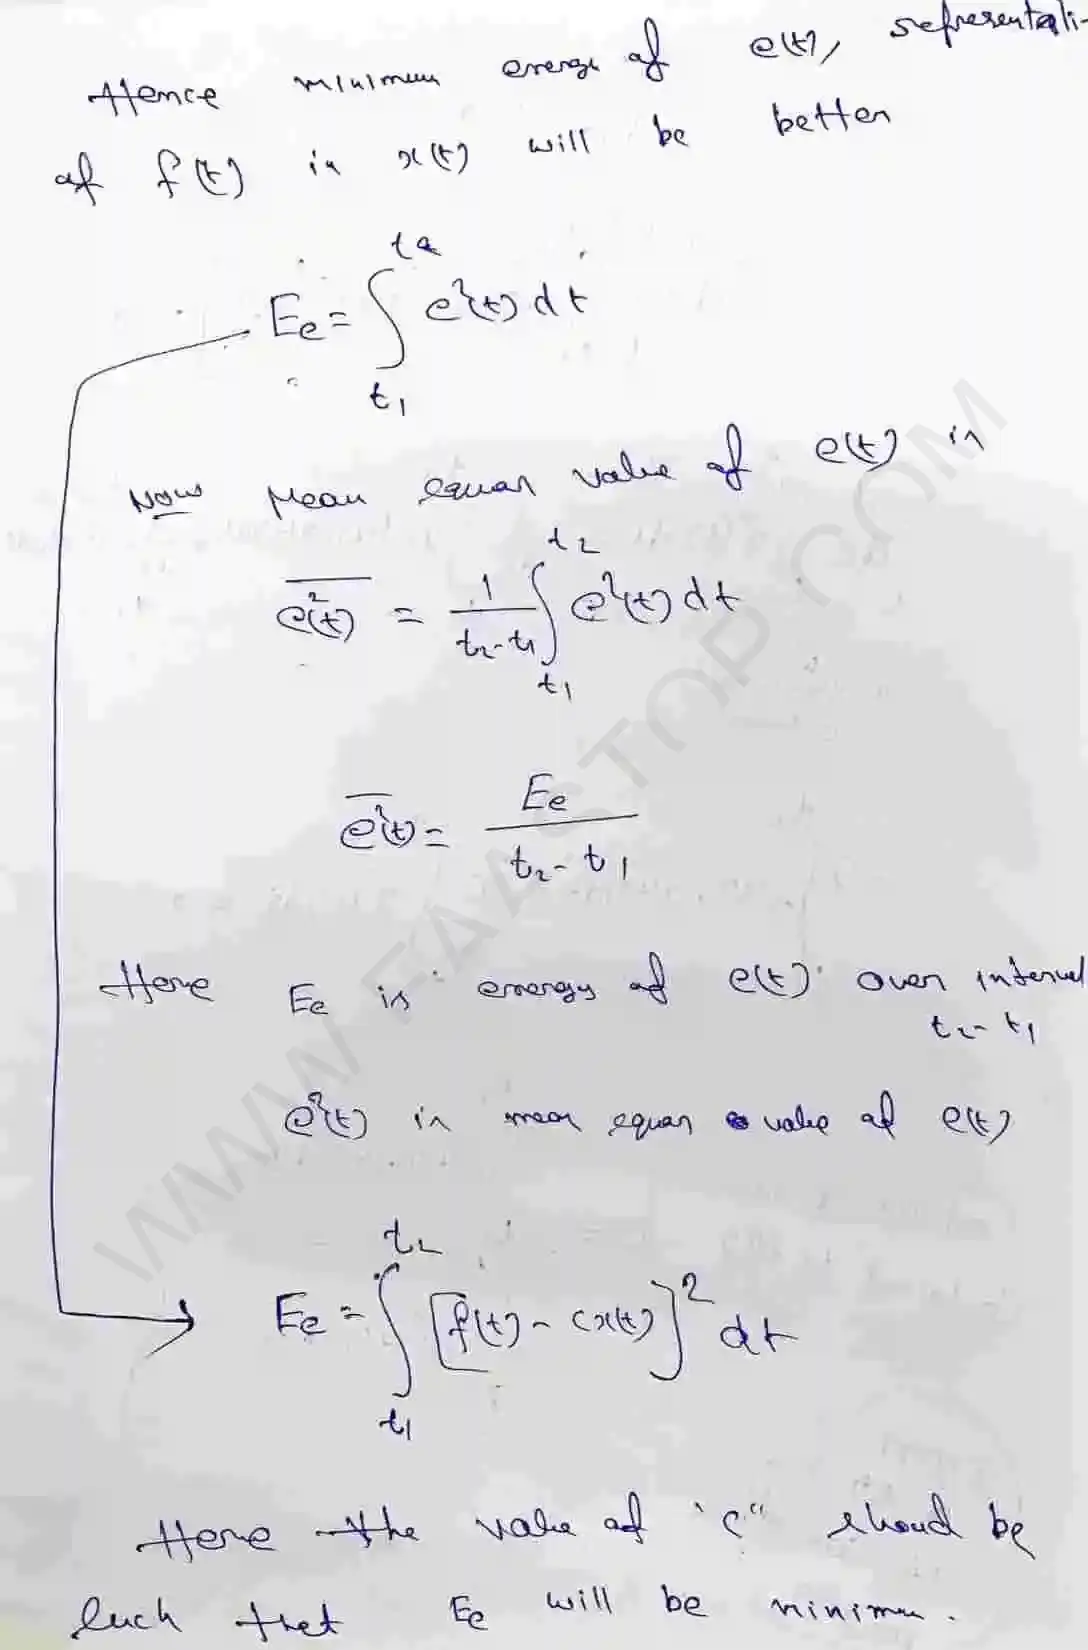 Hence minimum energy of e(t), representati-
of f(t) in x(t) will be better
t2
Ee = ∫ e²(t) dt
t1
Now Mean equar value of e(t) is
t2
e²(t) = 1/(t2-t1) ∫ e²(t) dt
t1
e²(t) = Ee/(t2-t1)
Here Ee is energy of e(t) over interval
t2-t1
e²(t) is mean equar value of e(t)
t2
Ee = ∫ [f(t) - cx(t)]² dt
t1
Here the value of "c" shoud be
such that Ee will be minimum.
WWW.FAASTOP.COM